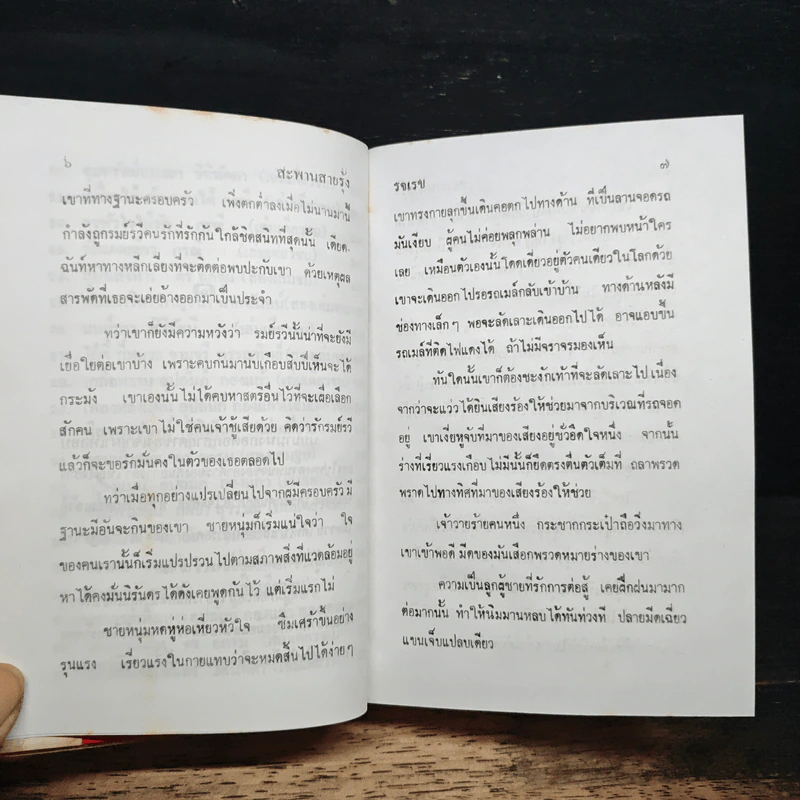 ๖ สะพานสายรุ้ง
เขาที่ทางฐานะครอบครัว เพิ่งตกต่ำลงเมื่อไม่นานมานี้
กำลังถูกรมย์รวีคนรักที่รักกันใกล้ชิดสนิทที่สุดนั้น เดียด-
ฉันท์หาทางหลีกเลี่ยงที่จะติดต่อพบปะกับเขา ด้วยเหตุผล
สารพัดที่เธอจะเอ่ยอ้างออกมาเป็นประจำ
ทว่าเขาก็ยังมีความหวังว่า รมย์รวีนั้นน่าที่จะยังมี
เยื่อใยต่อเขาบ้าง เพราะคบกันมานับเกือบสิบปีเห็นจะได้
กระมัง เขาเองนั้นไม่ได้คบหาสตรีอื่นไว้ที่จะเผื่อเลือก
สักคน เพราะเขาไม่ใช่คนเจ้าชู้เสียด้วย คิดว่ารักรมย์รวี
แล้วก็จะขอรักมั่นคงในตัวของเธอตลอดไป
ทว่าเมื่อทุกอย่างแปรเปลี่ยนไปจากผู้มีครอบครัวมี
ฐานะมีอันจะกินของเขา ชายหนุ่มก็เริ่มแน่ใจว่า ใจ
ของคนเรานั้นก็เริ่มแปรปรวนไปตามสภาพสิ่งที่แวดล้อมอยู่
หาได้คงมั่นนิรันดรได้ดังเคยพูดกันไว้ แต่เริ่มแรกไม่
ชายหนุ่มหดหู่ห่อเหี่ยวหัวใจ ซึมเศร้าขึ้นอย่าง
รุนแรง เรี่ยวแรงในกายแทบว่าจะหมดสิ้นไปได้ง่ายๆ
รจเรข ๗
เขาทรงกายลุกขึ้นเดินคอตกไปทางด้าน ที่เป็นลานจอดรถ
มันเงียบ ผู้คนไม่ค่อยพลุกพล่าน ไม่อยากพบหน้าใคร
เลย เหมือนตัวเองนั้นโดดเดี่ยวอยู่ตัวคนเดียวในโลกด้วย
เขาจะเดินออกไปรอรถเมล์กลับเข้าบ้าน ทางด้านหลังมี
ช่องทางเล็กๆ พอจะลัดเลาะเดินออกไปได้ อาจแอบขึ้น
รถเมล์ที่ติดไฟแดงได้ ถ้าไม่มีจราจรมองเห็น
ทันใดนั้นเขาก็ต้องชะงักเท้าที่จะลัดเลาะไป เนื่อง
จากว่าจะแว่วได้ยินเสียงร้องให้ช่วยมาจากบริเวณที่รถจอด
อยู่ เขาเงี่ยหูจับที่มาของเสียงอยู่ชั่วอึดใจหนึ่ง จากนั้น
ร่างที่เรี่ยวแรงเกือบไม่มีนั้นก็ยืดตรงตื่นตัวเต็มที่ ถลาพรวด
พราดไปทางทิศที่มาของเสียงร้องให้ช่วย
เจ้าวายร้ายคนหนึ่ง กระชากกระเป๋าถือวิ่งมาทาง
เขาเข้าพอดี มีดของมันเสือกพรวดหมายร่างของเขา
ความเป็นลูกผู้ชายที่รักการต่อสู้ เคยฝึกฝนมามาก
ต่อมากนั้น ทำให้นิมมานหลบได้ทันท่วงที ปลายมีดเฉี่ยว
แขนเจ็บแปลบเดียว